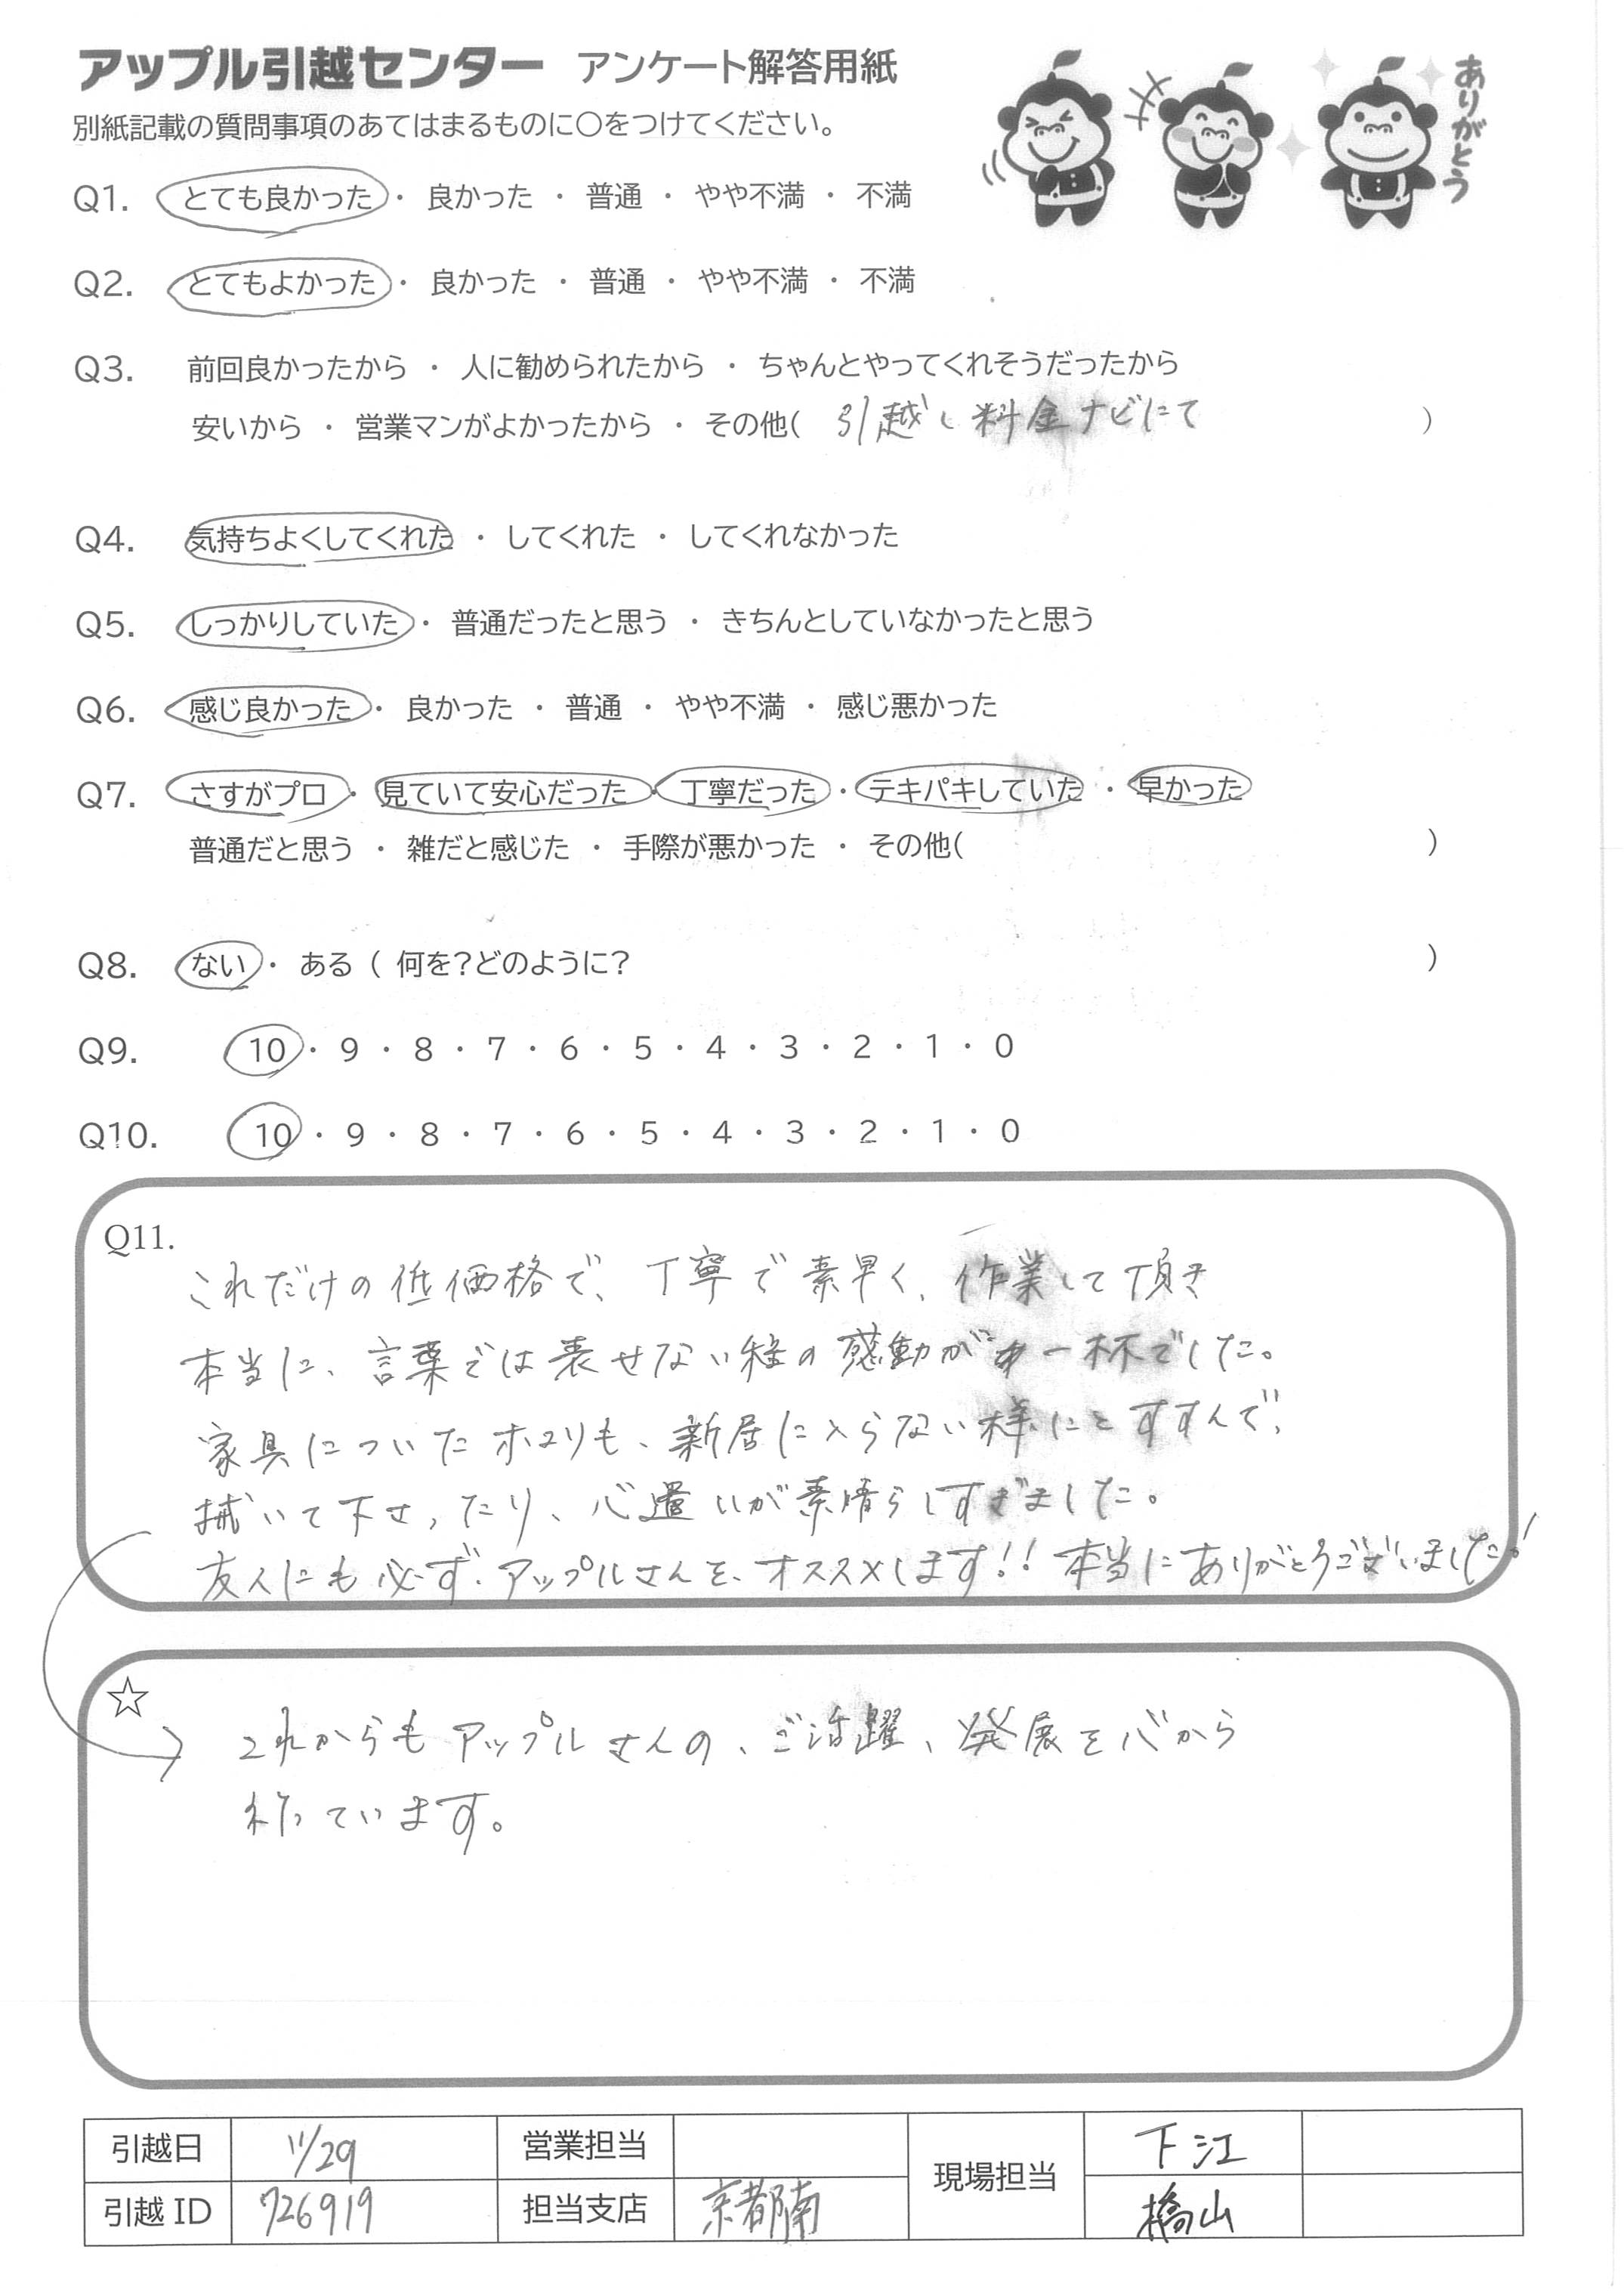 アップル引越センター アンケート解答用紙
ありがとう
別紙記載の質問事項のあてはまるものに○をつけてください。
Q1. とても良かった ・ 良かった ・ 普通 ・ やや不満 ・ 不満
Q2. とてもよかった ・ 良かった ・ 普通 ・ やや不満 ・ 不満
Q3. 前回良かったから ・ 人に勧められたから ・ ちゃんとやってくれそうだったから
安いから ・ 営業マンがよかったから ・ その他( 引越し料金ナビにて )
Q4. 気持ちよくしてくれた ・ してくれた ・ してくれなかった
Q5. しっかりしていた ・ 普通だったと思う ・ きちんとしていなかったと思う
Q6. 感じ良かった ・ 良かった ・ 普通 ・ やや不満 ・ 感じ悪かった
Q7. さすがプロ ・ 見ていて安心だった ・ 丁寧だった ・ テキパキしていた ・ 早かった
普通だと思う ・ 雑だと感じた ・ 手際が悪かった ・ その他( )
Q8. ない ・ ある ( 何を?どのように? )
Q9. 10 ・ 9 ・ 8 ・ 7 ・ 6 ・ 5 ・ 4 ・ 3 ・ 2 ・ 1 ・ 0
Q10. 10 ・ 9 ・ 8 ・ 7 ・ 6 ・ 5 ・ 4 ・ 3 ・ 2 ・ 1 ・ 0
Q11.
これだけの低価格で、丁寧で素早く、作業して頂き
本当に、言葉では表せない程の感動が一杯でした。
家具についたホコリも、新居に入らない様にとすすんで、
拭いて下さったり、心遣いが素晴らしすぎました。
友人にも必ず、アップルさんを、オススメします!! 本当にありがとうございました!
☆
→ これからもアップルさんの、ご活躍、発展を心から
祈っています。
引越日 11/29 営業担当 現場担当 下江
引越ID 726919 担当支店 京都南 橋山